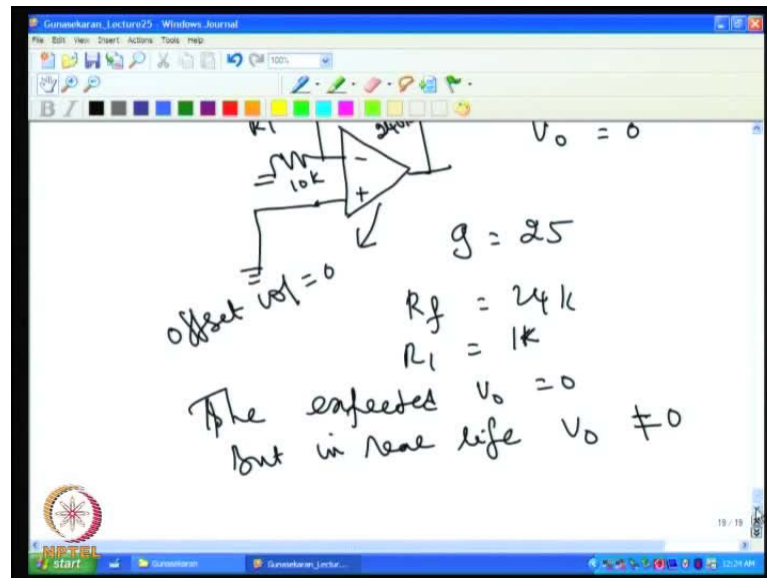 Gunasekaran_Lecture25 - Windows Journal
File Edit View Insert Actions Tools Help
100%
B I
R1 240k V0 = 0
-
10K
+
g = 25
offset vol = 0
Rf = 24k
R1 = 1K
The expected V0 = 0
But in real life V0 ≠ 0
19 / 19
NPTEL
start Gunasekaran Gunasekaran_Lectur... 12:24 AM